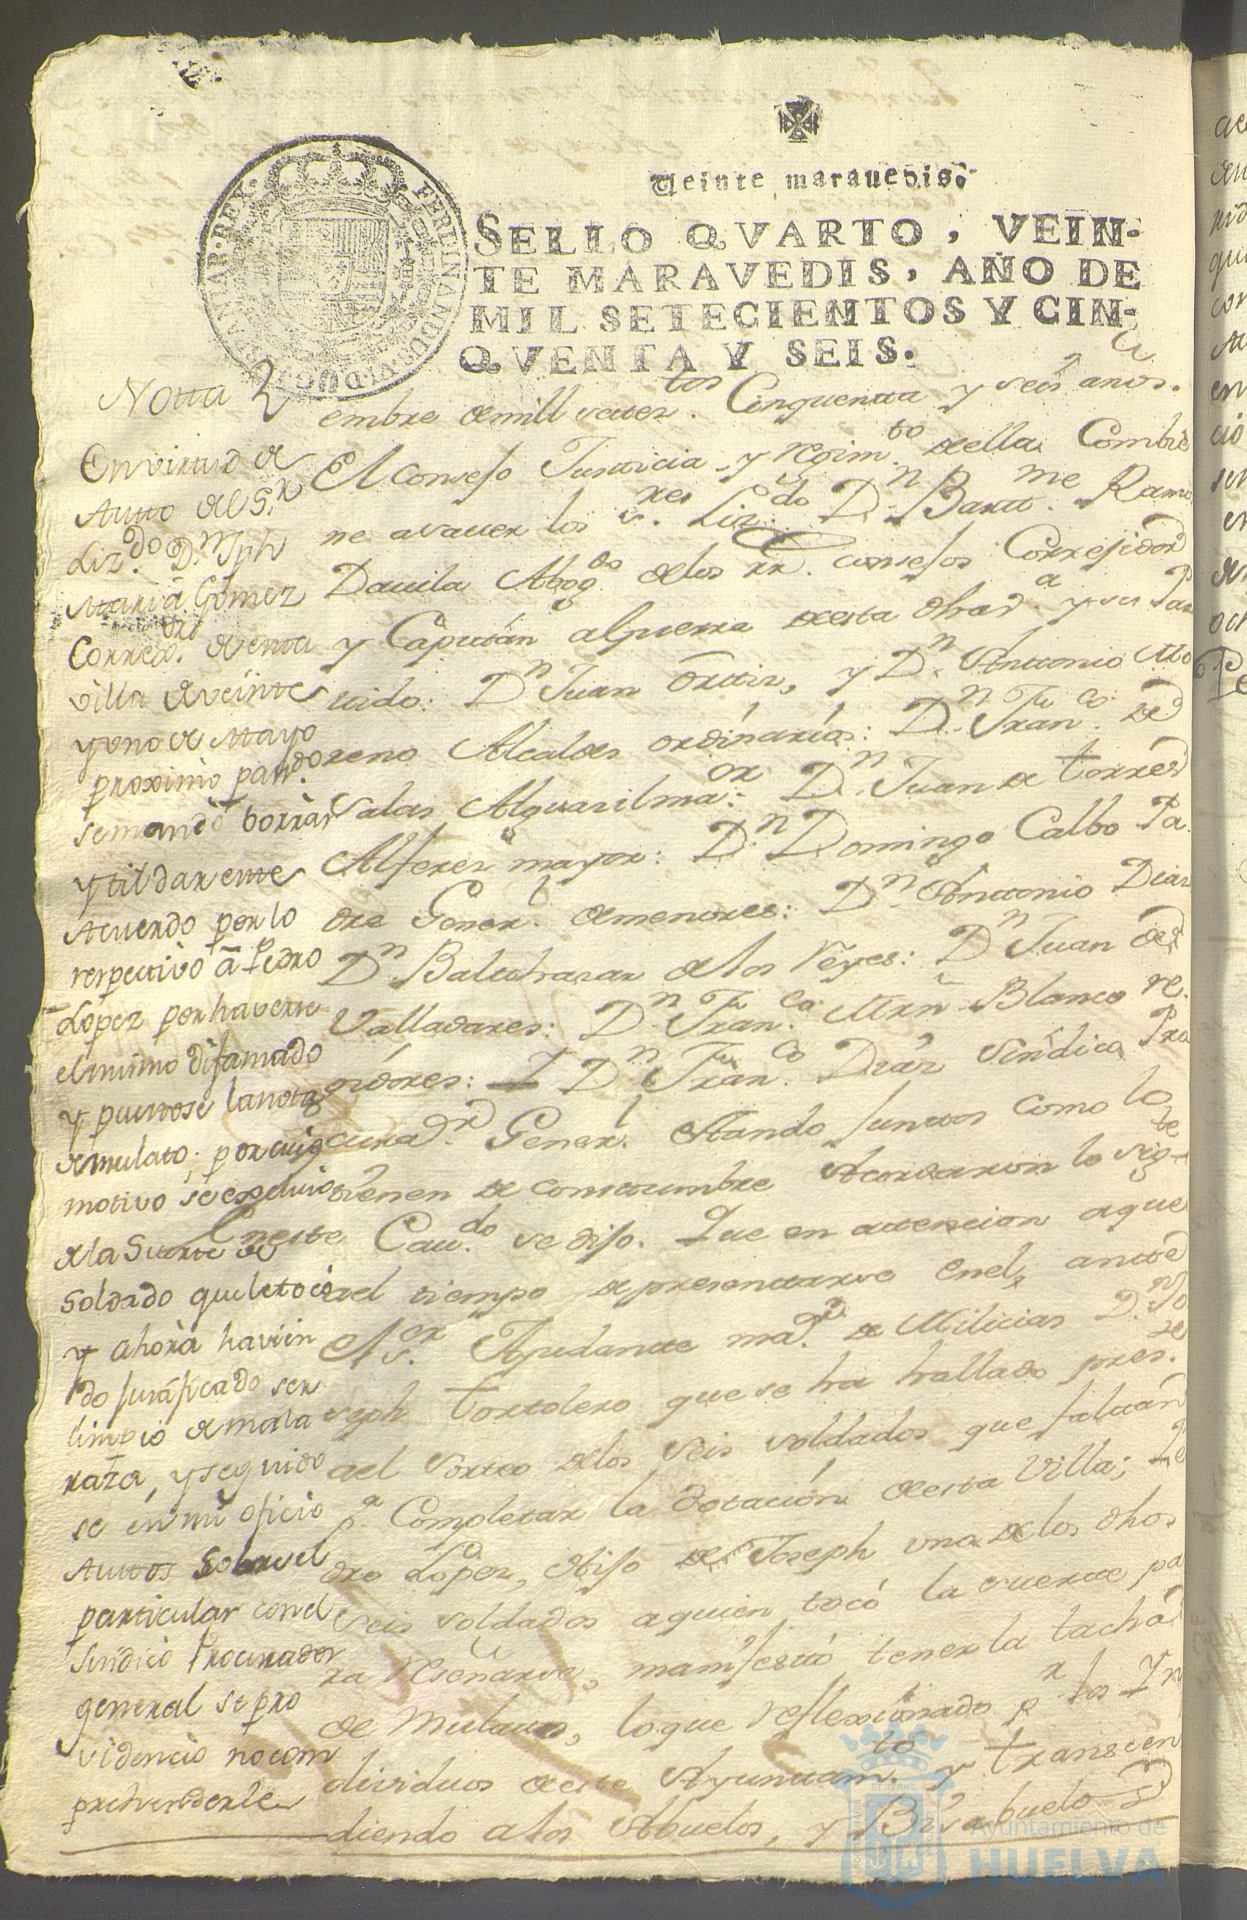 Veinte maravedis.
SELLO QVARTO, VEIN-
TE MARAVEDIS, AÑO DE
MIL SETECIENTOS Y CIN-
QVENTA Y SEIS.
FERDINANDUS VI D G HISPANIAR REX
Notta
En virtud de
Autto del S.r
Liz.do D.n Jph
Maria Gomez
Corred.
villa de veinte
y uno de Mayo
proximo pasado
se mandó borrar
y tildar este
Acuerdo por lo
respectivo â Pedro
Lopez por haverse
el mismo difamado
y puestose la nota
de mulato; por cuio
motivo se excluio
de la Suerte de
Soldado que le toco
y ahora havien
do justificado ser
limpio de mala
raza, y seguido
se en mi oficio
Auttos sobre el
particular con el
Sindico Procurador
general se pro
videncio no com
prehenderle
embre de mill setez.tos Cinquenta y seis anos.
El Consejo Justicia y rejim.to della Combie
ne a saver los s.res Liz.do D.n Barti.me Ramo
Davila Abog.do de los rr.s consejos Correjidor
y Capitan a lguerra desta dha d.a y su Par
tido: D.n Juan Ortiz, y D.n Anttonio Mo
reno Alcaldes ordinarios: D.n Fran.co de
Salas Alguasil ma.or D.n Juan de torres
Alferes mayor: D.n Domingo Calbo Pa
dre Gener.l de menores: D.n Anttonio Diaz
D.n Balthasar de los Reyes: D.n Juan de
Valladares: D.n Fran.co Mrn Blanco re
gidores: I D.n Fran.co Diaz Sindico Pro
curad.r Gener.l Estando Juntos como lo
tienen de constumbre Acordaron lo sig.te
En este Cau.do se dijo. Que en attencion a que
al tiempo de presentarse en el antte
el s.r Ayudante ma.or de Milicias D.n Jo
seph Tortolero que se ha hallado pres.te
al Sorteo de los seis soldados que faltan
p.a Completar la dotacion desta Villa; Pe
dro Lopez, hijo de Joseph uno de los dhos
seis soldados a quien tocó la suerte pa
ra reseñarse, manifestó tener la tacha
de Mulato, lo que reflexionado p.r los In
dividuos deste Ayunttam.to y transcen
diendo a los Abuelos, y Bisabuelo
Ayuntamiento de
HUELVA